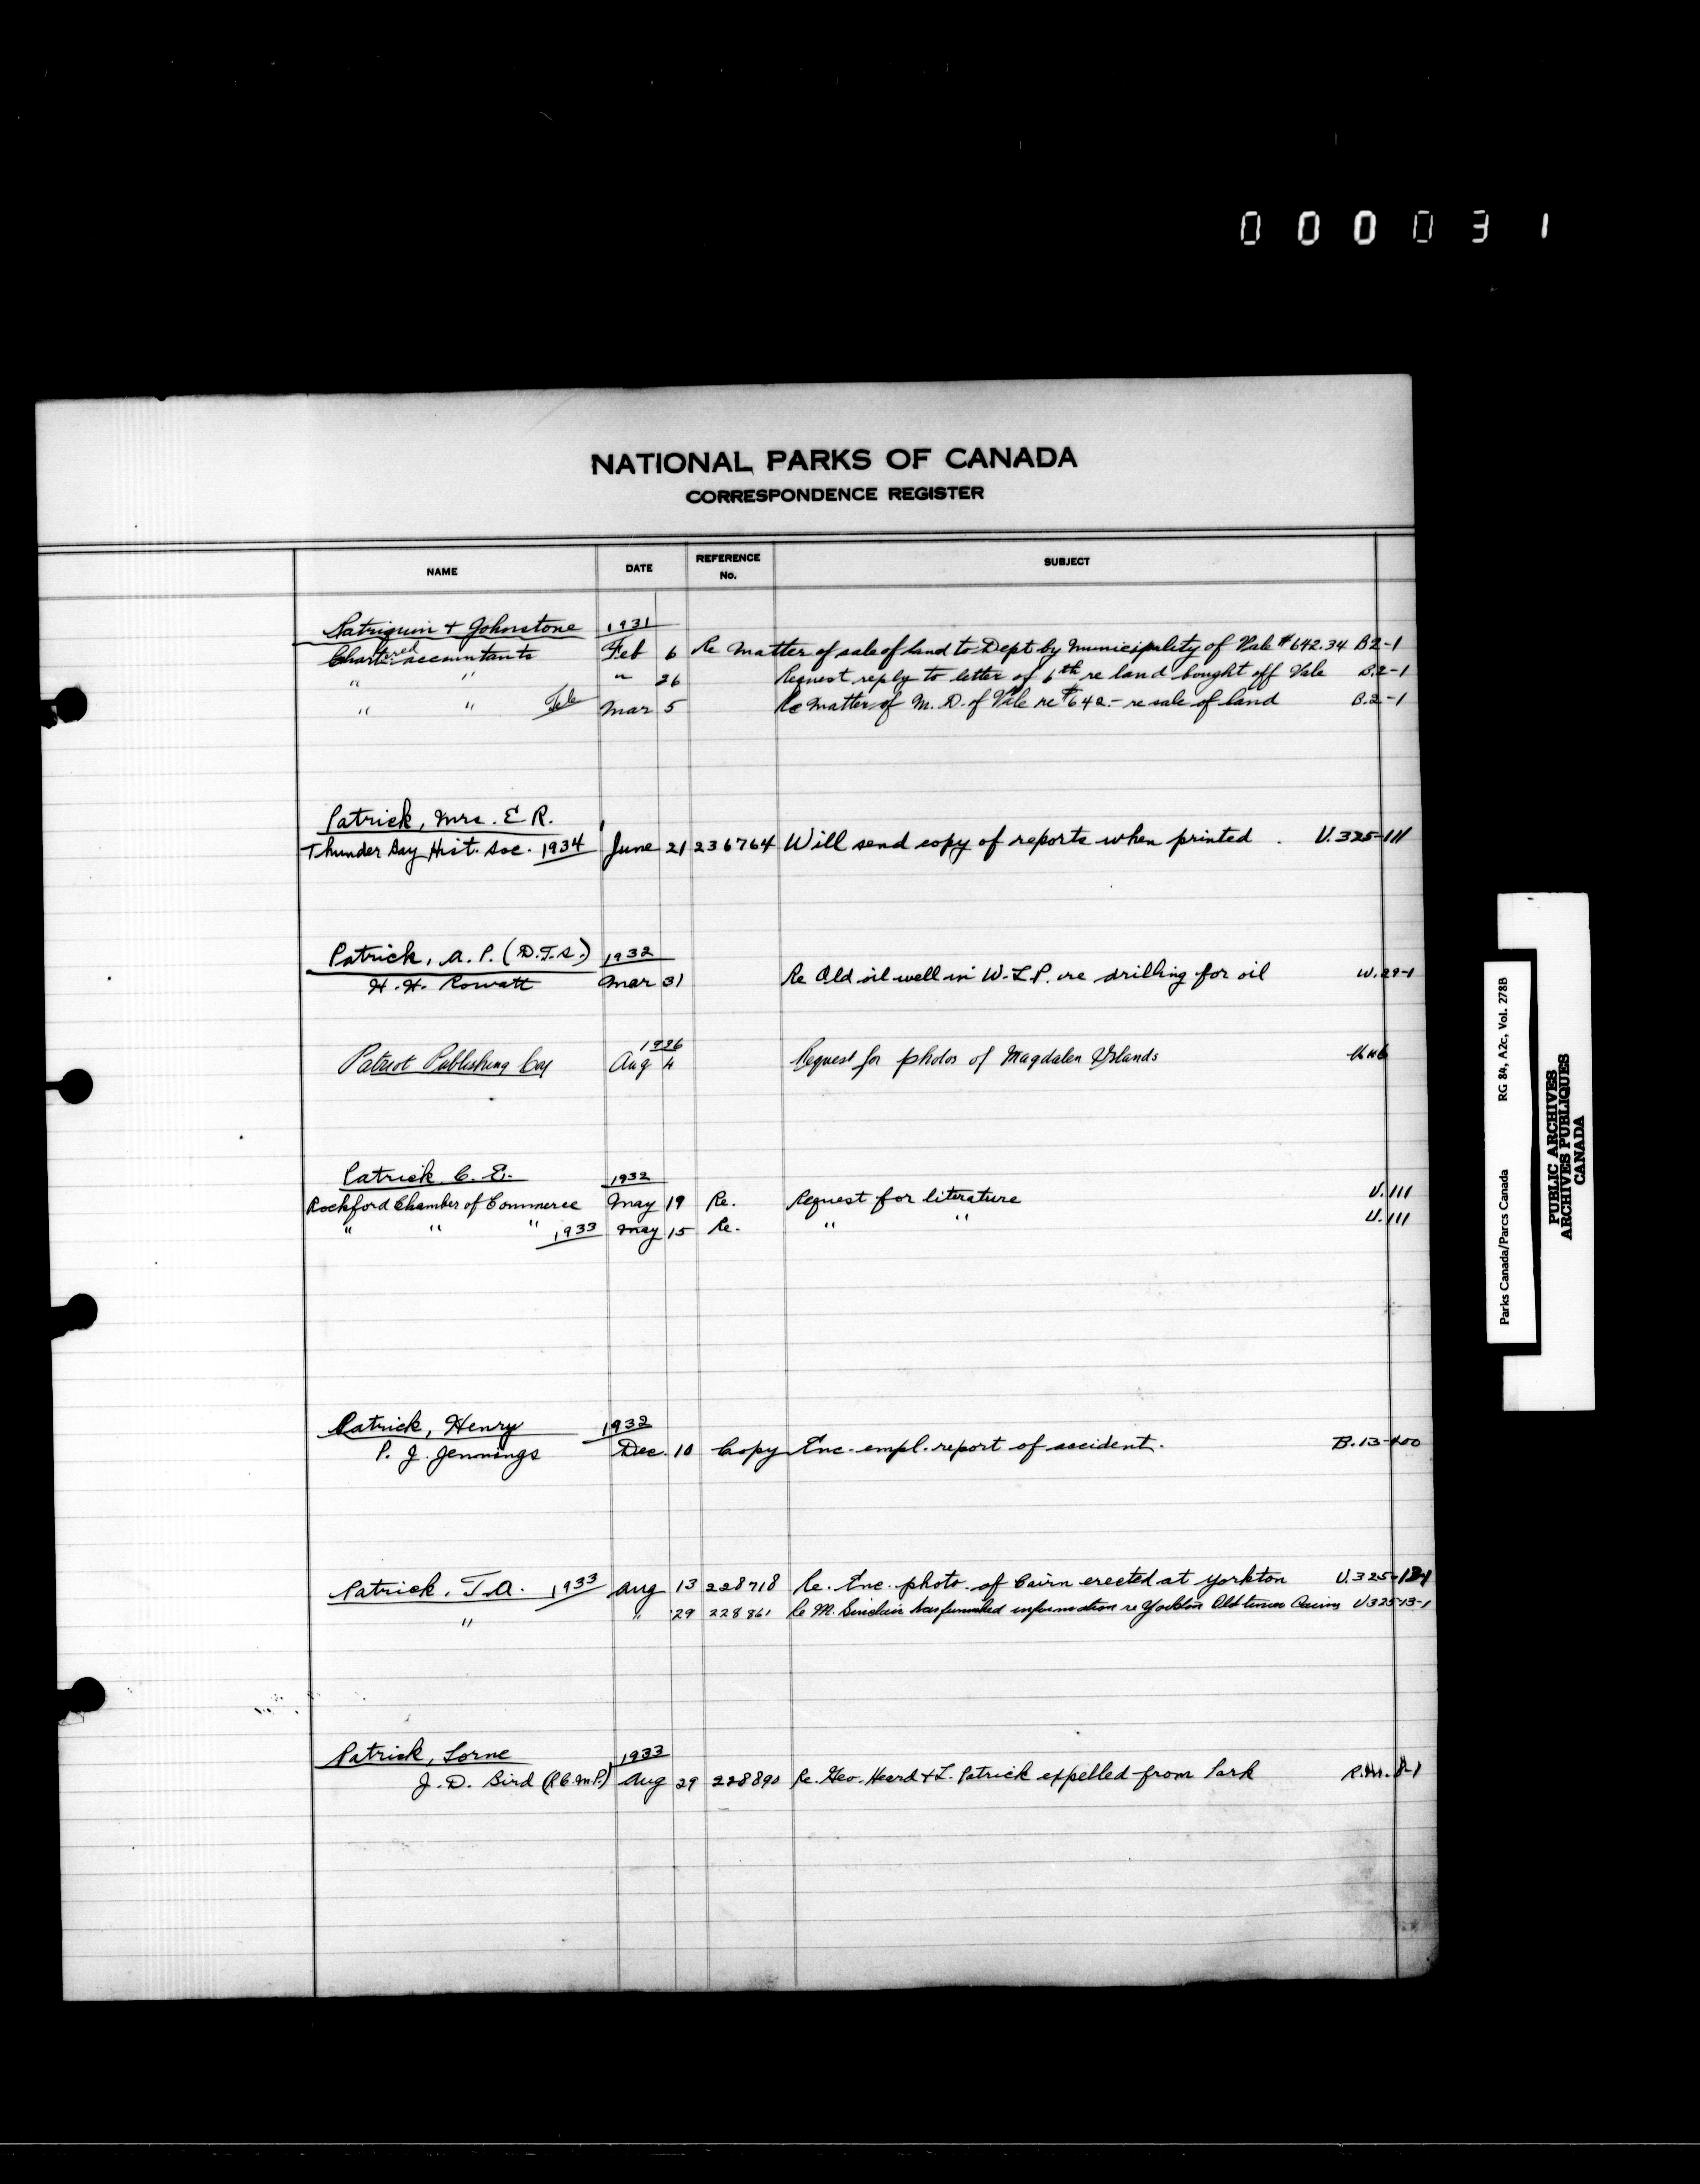 000031
NATIONAL PARKS OF CANADA
CORRESPONDENCE REGISTER
NAME DATE REFERENCE No. SUBJECT
Patriquin + Johnstone 1931
Chartered accountants Feb 6 Re Matter of sale of land to Dept by Municipality of Vale #642.34 B2-1
" " " 26 Request reply to letter of 6th re land bought off Vale B.2-1
" " Tele Mar 5 Re Matter of M. D. of Vale re #642.- re sale of land B.2-1
Patrick, Mrs. E R.
Thunder Bay Hist. Soc. 1934 June 21 236764 Will send copy of reports when printed . U.325-111
Patrick, A. P. (D.T.S.) 1932
H. H. Rowatt Mar 31 Re Old oil well in W.L.P. re drilling for oil W.29-1
1936
Patriot Publishing Coy Aug 4 Request for photos of Magdalen Islands
Patrick C. E. 1932
Rockford Chamber of Commerce May 19 Re. Request for literature U.111
" " " 1933 May 15 Re. " " U.111
Patrick, Henry 1932
P. J. Jennings Dec. 10 Copy Enc. empl. report of accident. B.13-400
Patrick, T.A. 1933 Aug 13 228718 Re. Enc. photo of Cairn erected at Yorkton U.325-13-1
" " 29 228861 Re M. Sinclair has furnished information re Yorkton Old timers U325-13-1
Patrick, Lorne 1933
J. D. Bird (R.C.M.P.) Aug 29 228890 Re. Geo. Heard & L. Patrick expelled from Park R.M. 8-1
Parks Canada/Parcs Canada RG 84, A2c, Vol. 278B
PUBLIC ARCHIVES
ARCHIVES PUBLIQUES
CANADA